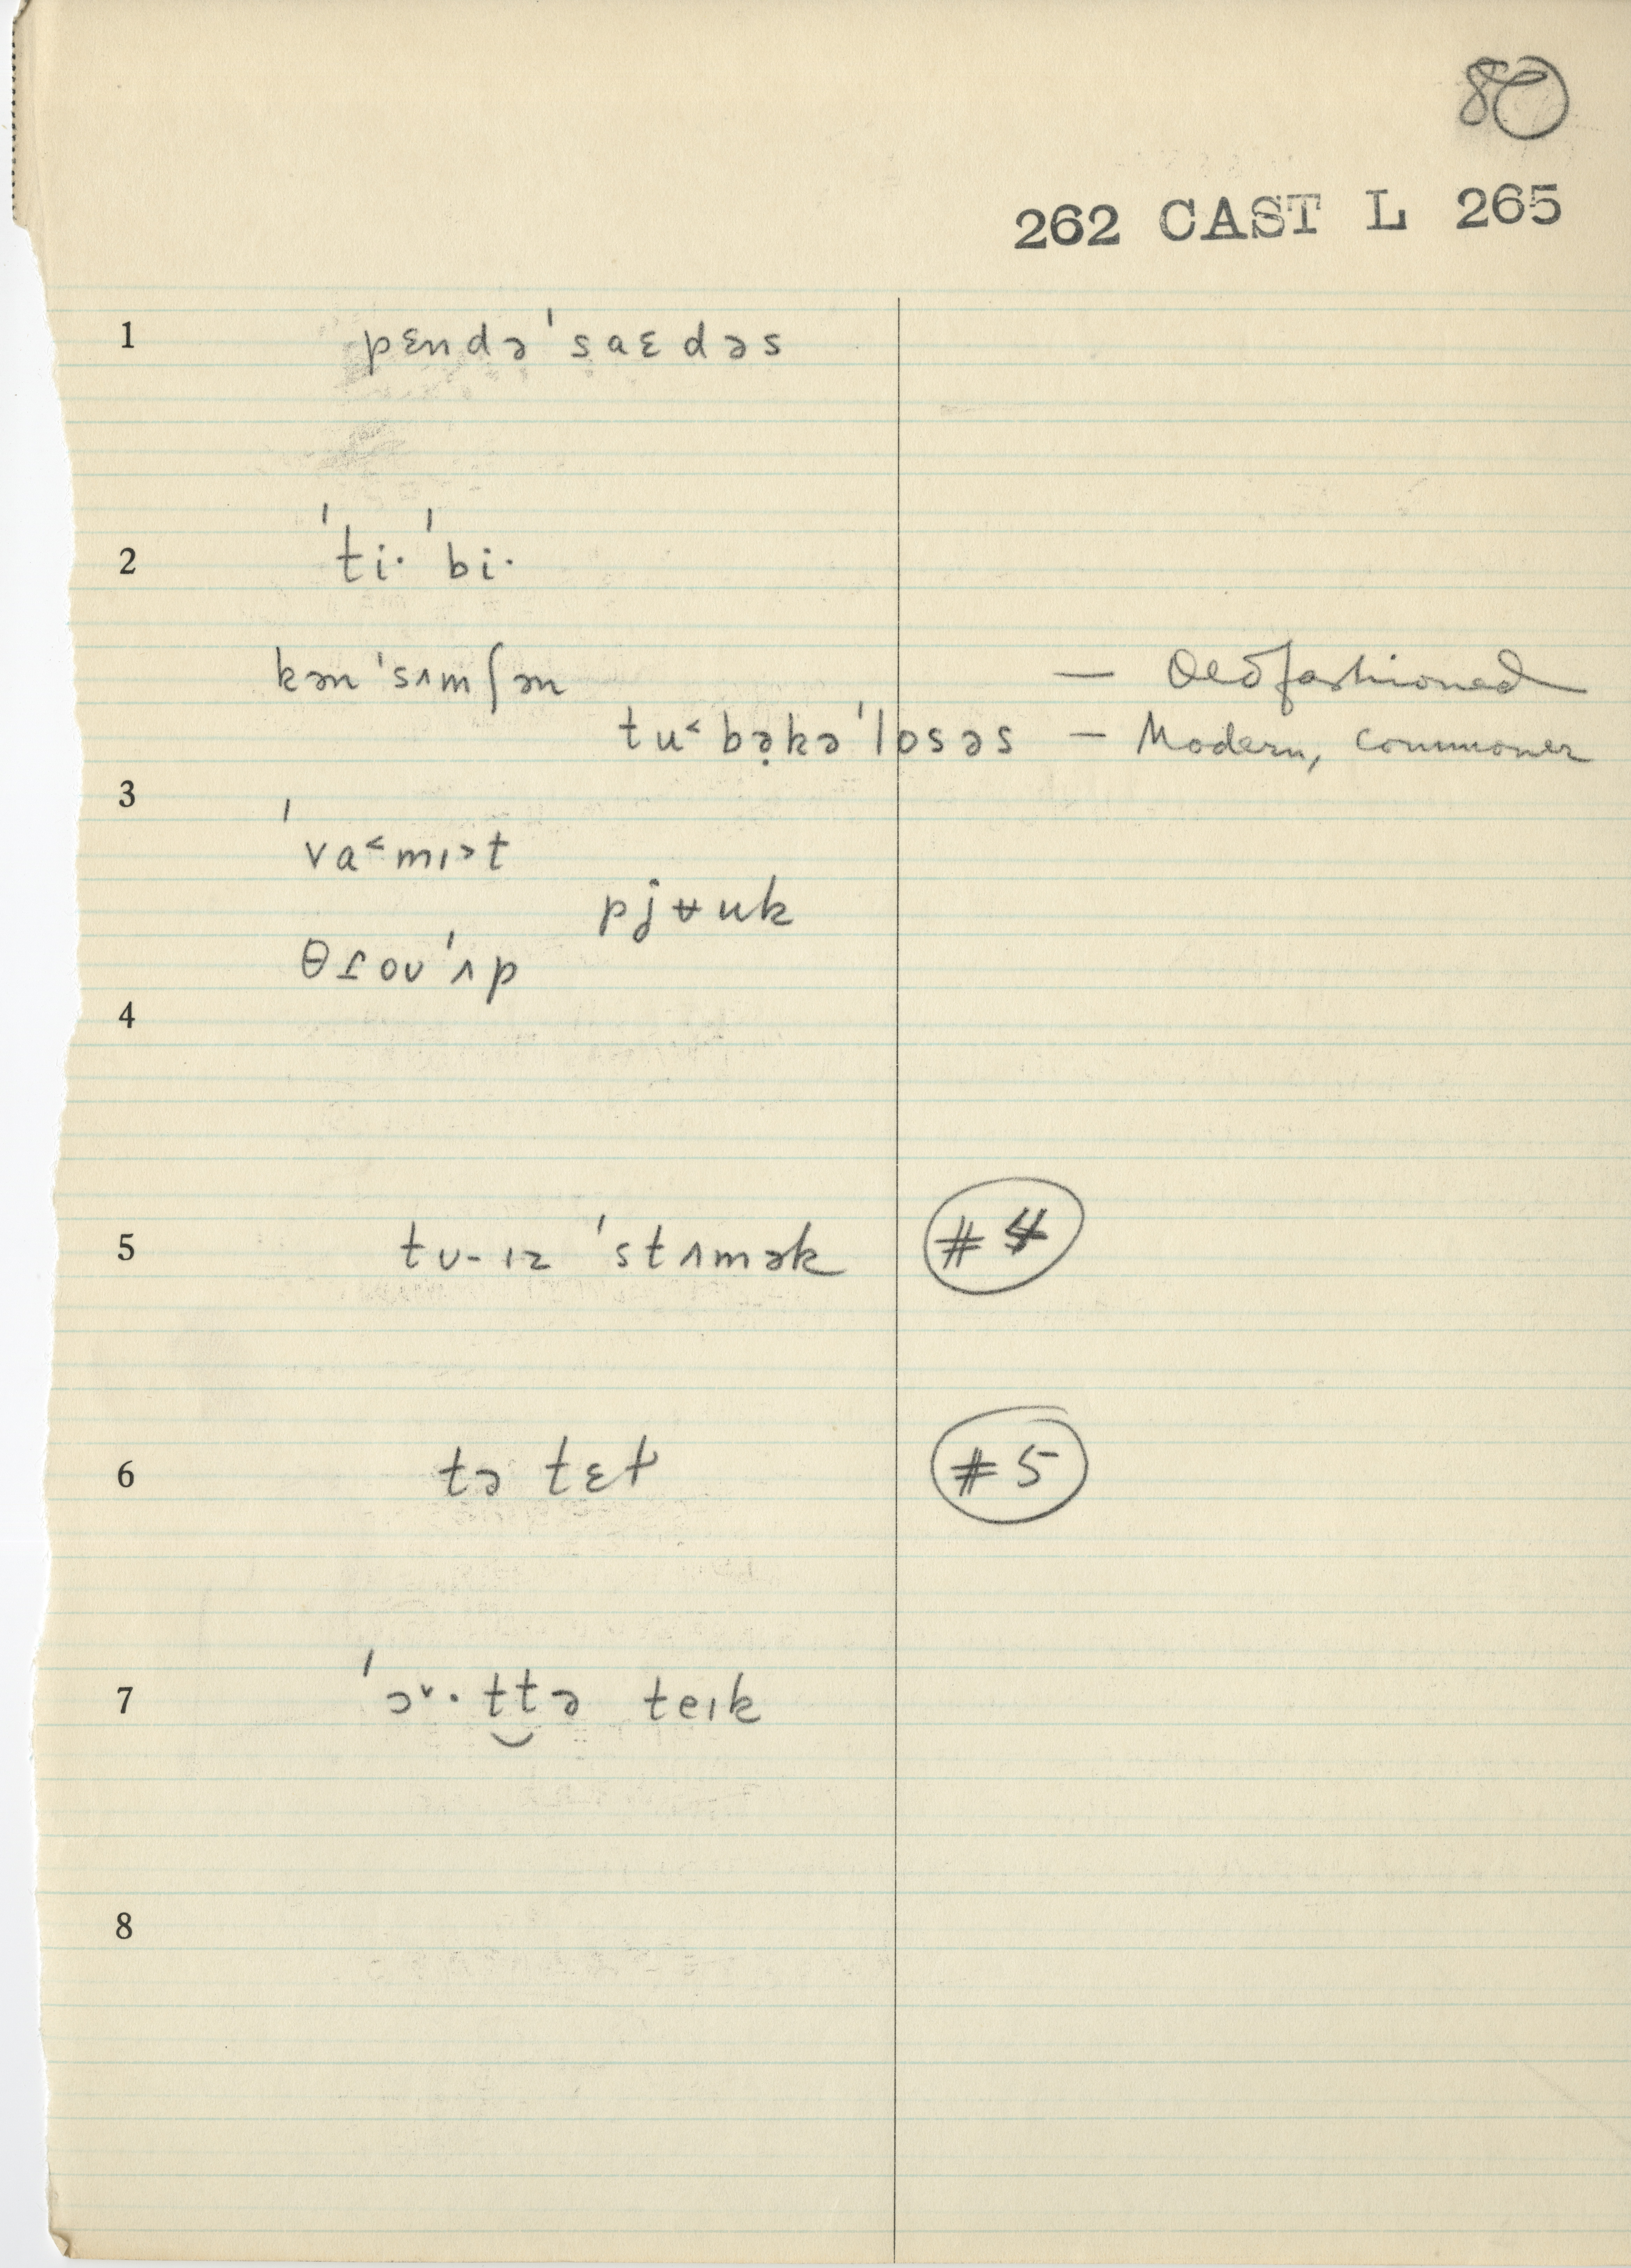 80
262 CAST L 265
1 pɛndə'saɛdəs
2 'ti· 'bi·
kən'sʌmʃən — Old fashioned
tu˂bə̣kə'losəs — Modern, commoner
3
'va˂mɪ˃t
pjʉuk
θɾoʊ'ʌp
4
5 tʊ-ɪz 'stʌmək #4
6 tə tɛt #5
7 'ɔ˅·t‿tə teɪk
8